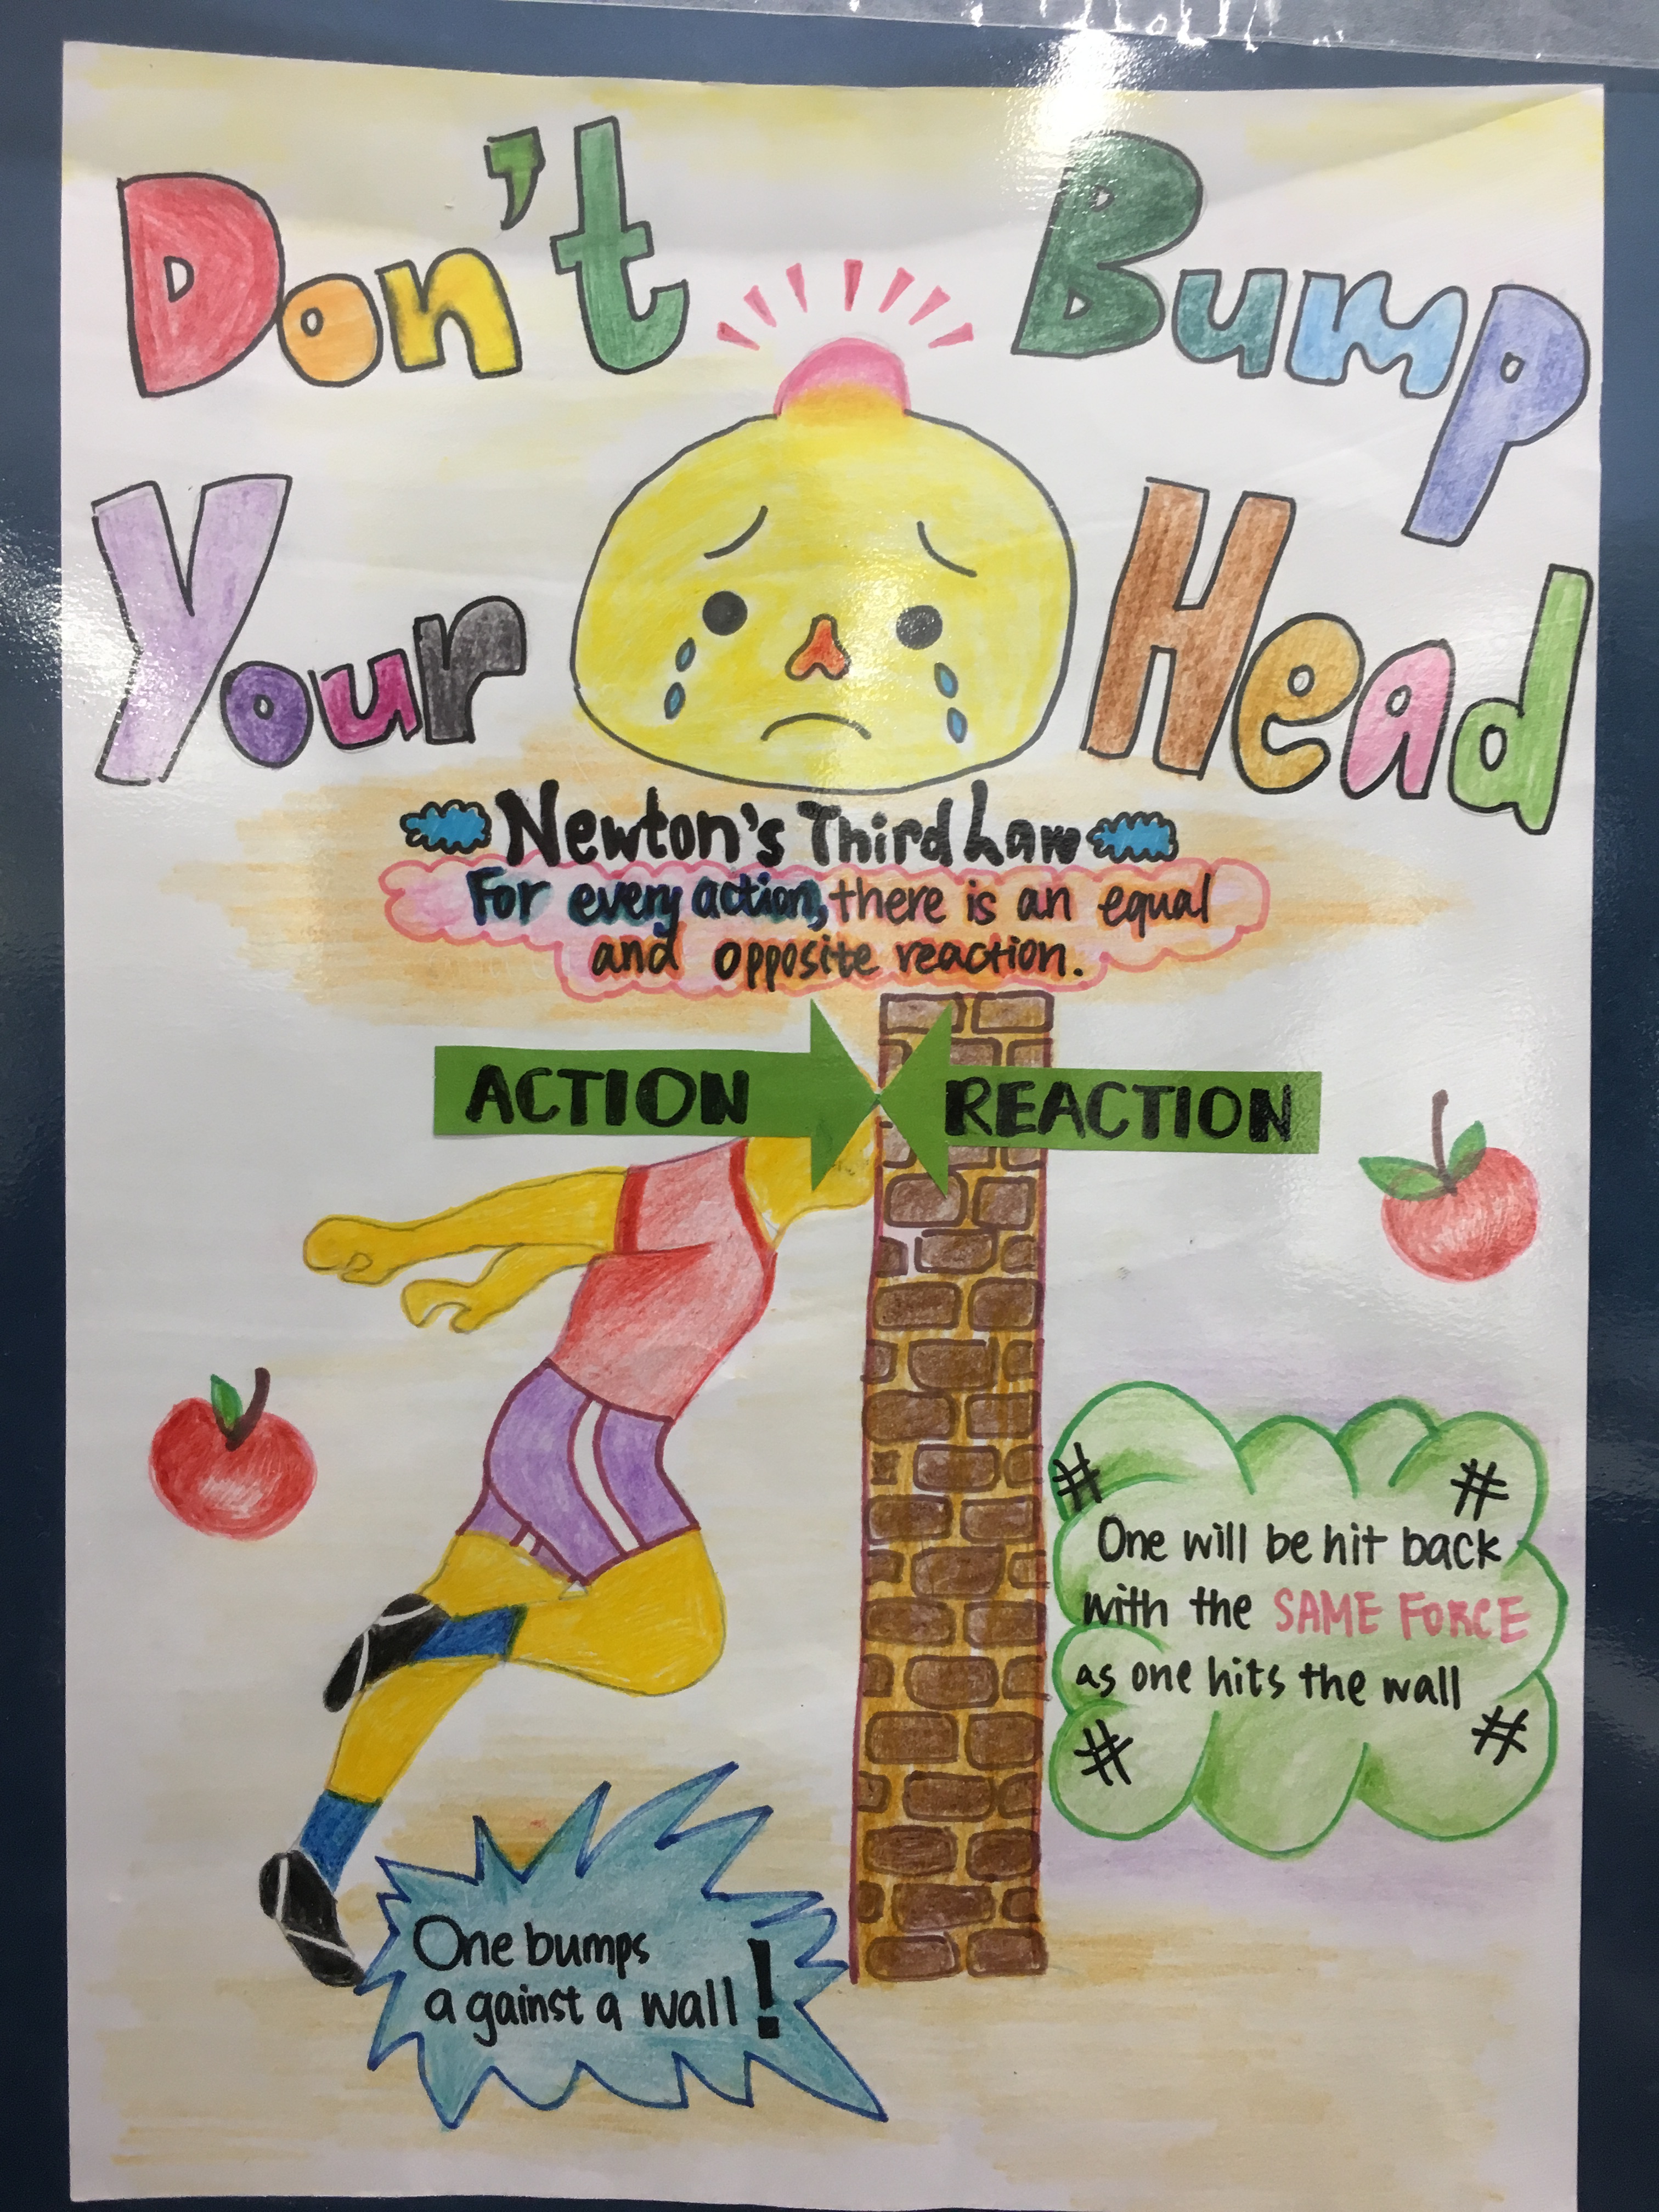 Don't Bump
Your Head
Newton's Third Law
For every action, there is an equal
and opposite reaction.
ACTION
REACTION
# #
One will be hit back
with the SAME FORCE
as one hits the wall
# #
One bumps
against a wall!